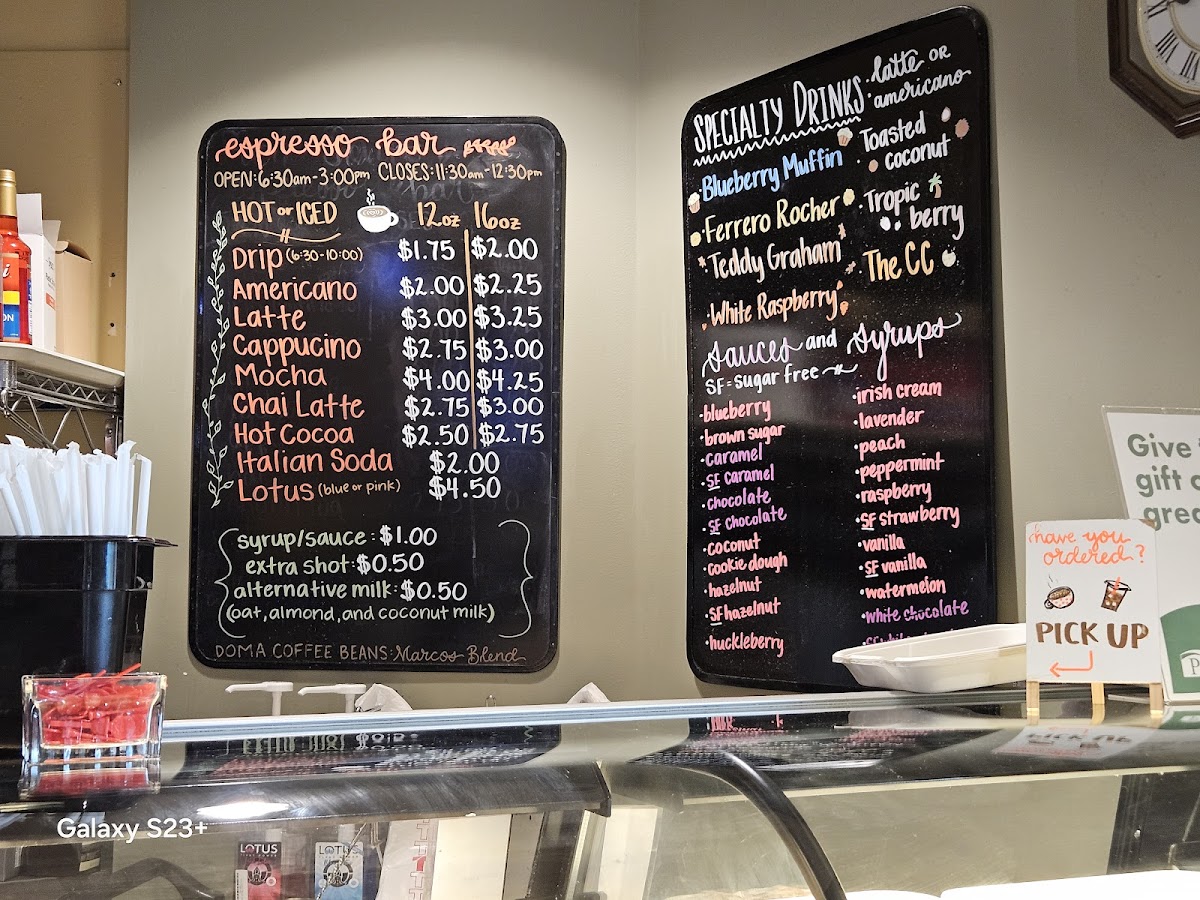 espresso bar
OPEN: 6:30am-3:00pm CLOSES: 11:30am-12:30pm
HOT or ICED 12oz 16oz
Drip (6:30-10:00) $1.75 $2.00
Americano $2.00 $2.25
Latte $3.00 $3.25
Cappucino $2.75 $3.00
Mocha $4.00 $4.25
Chai Latte $2.75 $3.00
Hot Cocoa $2.50 $2.75
Italian Soda $2.00
Lotus (blue or pink) $4.50
syrup/sauce: $1.00
extra shot: $0.50
alternative milk: $0.50
(oat, almond, and coconut milk)
DOMA COFFEE BEANS: Marcos Blend
SPECIALTY DRINKS: latte OR
americano
Blueberry Muffin
Ferrero Rocher
Teddy Graham
White Raspberry
Toasted
coconut
Tropic
berry
The CC
sauces and syrups
SF = sugar free
·blueberry
·brown sugar
·caramel
·SF caramel
·chocolate
·SF chocolate
·coconut
·cookie dough
·hazelnut
·SF hazelnut
·huckleberry
·irish cream
·lavender
·peach
·peppermint
·raspberry
·SF strawberry
·vanilla
·SF vanilla
·watermelon
·white chocolate
Give
gift
grea
have you
ordered?
PICK UP
LOTUS
LOTUS
Galaxy S23+